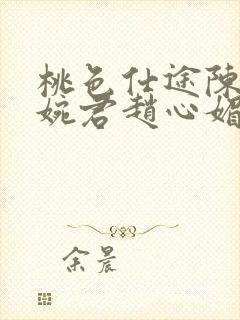 桃色仕途陳
婉君趙心媚
余晨